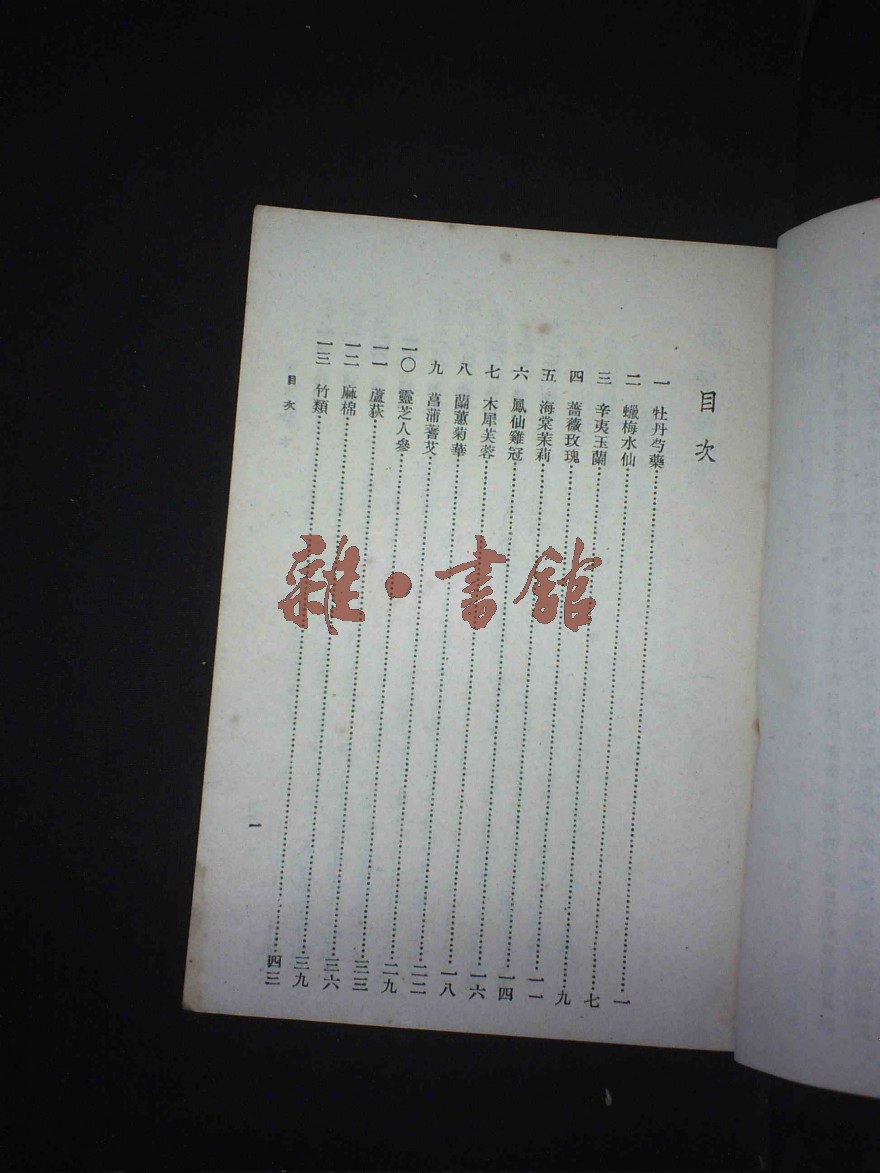 目次
一 牡丹芍藥……一
二 蠟梅水仙……七
三 辛夷玉蘭……九
四 薔薇玫瑰……一一
五 海棠茉莉……一四
六 鳳仙雞冠……一六
七 木犀芙蓉……一八
八 蘭蕙菊華……二二
九 菖蒲蓍艾……二九
一〇 靈芝人參……三三
一一 蘆荻……三六
一二 麻棉……三九
一三 竹類……四三
目次
一
雜·書館